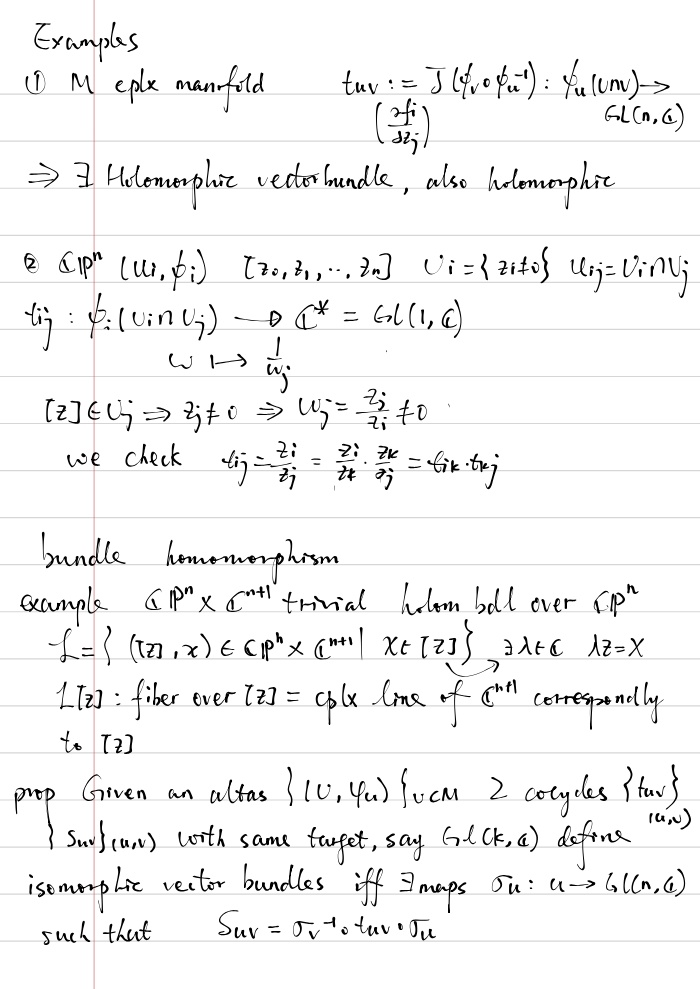 Examples
① M cplx manifold t_{UV} := J(ϕ_V∘ϕ_U^{-1}) : ϕ_U(U∩V) ⟶ GL(n,ℂ)
(∂f_i/∂z_j)
⇒ ∃ Holomorphic vector bundle, also holomorphic
② ℂP^n (U_i, ϕ_i) [z_0, z_1, .., z_n] U_i = {z_i≠0} U_{ij} = U_i∩U_j
t_{ij} : ϕ_i(U_i∩U_j) ⟶ ℂ* = GL(1,ℂ)
w ⟼ 1/w_j
[z]∈U_j ⇒ z_j≠0 ⇒ w_j = z_j/z_i ≠0
we check t_{ij} = z_i/z_j = z_i/z_k · z_k/z_j = t_{ik}·t_{kj}
bundle homomorphism
example ℂP^n × ℂ^{n+1} trivial holom bdl over ℂP^n
L = { ([z], x) ∈ ℂP^n × ℂ^{n+1} | x∈[z] } ∃λ∈ℂ λz=x
L[z] : fiber over [z] = cplx line of ℂ^{n+1} correspondly
to [z]
prop Given an altas {(U, φ_U)}_{U⊂M} 2 cocycles {t_{UV}}_{(U,V)}
{S_{UV}}_{(U,V)} with same target, say GL(k,ℂ) define
isomorphic vector bundles iff ∃ maps σ_U : U → GL(n,ℂ)
such that S_{UV} = σ_V^{-1}∘t_{UV}∘σ_U